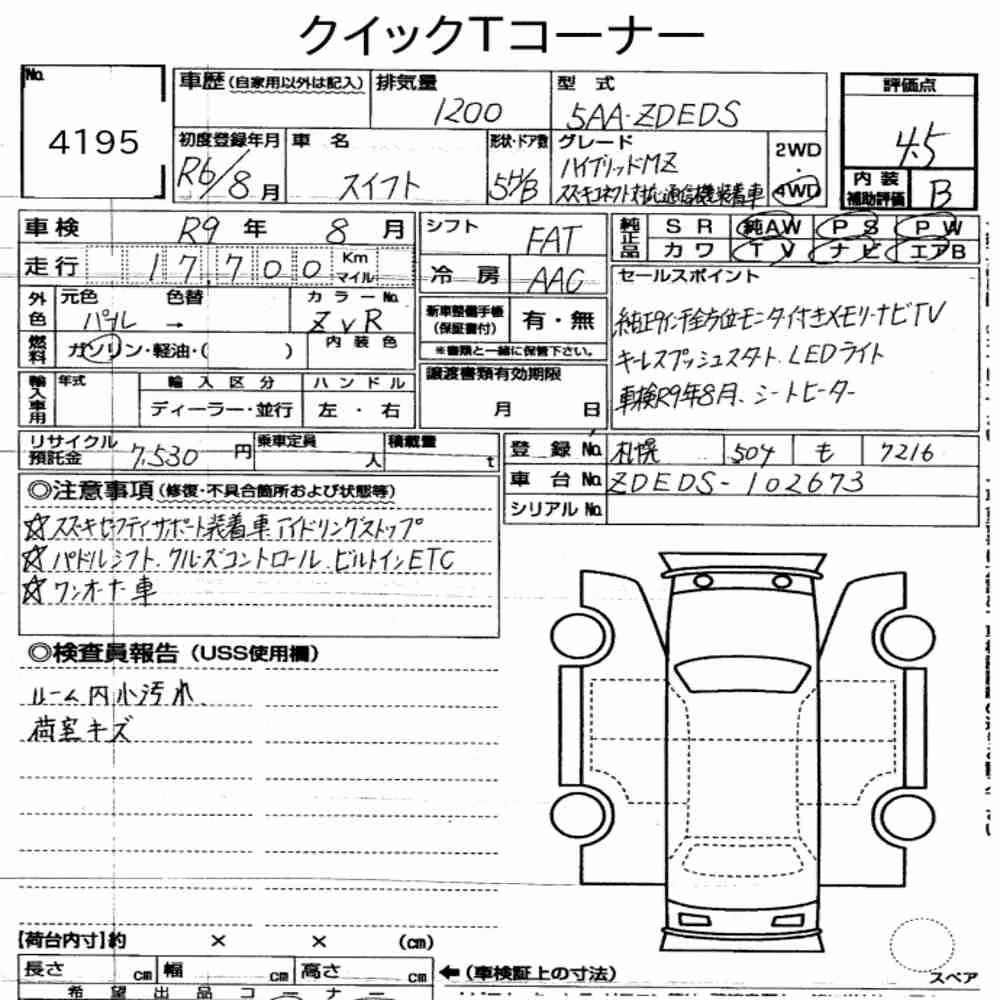 クイックTコーナー
No. 4195
車歴 (自家用以外は記入)
排気量 1200
型式 5AA-ZDEDS
評価点 4.5
初度登録年月 R6/8月
車名 スイフト
形状・ドア数 5H/B
グレード ハイブリッドMZ
スズキコネクト対応通信機装着車
2WD
4WD
内装補助評価 B
車検 R9年 8月
シフト FAT
純正品 SR 純AW PS PW
カワ TV ナビ エアB
走行 17,700 Km マイル
冷房 AAC
セールスポイント
外色 元色 パール → 色替
カラーNo. ZVR
内装色
新車整備手帳(保証書付) 有・無
※書類と一緒に保管下さい。
純正9インチ全方位モニタ付きメモリーナビTV
燃料 ガソリン・軽油・( )
キーレスプッシュスタート、LEDライト
輸入車用 年式 輸入区分 ハンドル
ディーラー・並行 左・右
譲渡書類有効期限
月 日
車検R9年8月、シートヒーター
リサイクル預託金 7,530円
乗車定員 人
積載量 t
登録No. 札幌 504 も 7216
車台No. ZDEDS-102673
シリアルNo.
◎注意事項 (修復・不具合箇所および状態等)
☆スズキセーフティサポート装着車 アイドリングストップ
☆パドルシフト、クルーズコントロール、ビルトインETC
☆ワンオーナー車
◎検査員報告 (USS使用欄)
ルーム内小汚れ
荷室キズ
【荷台内寸】約 × × (cm)
長さ cm 幅 cm 高さ cm
←(車検証上の寸法)
スペア
希望出品コーナー